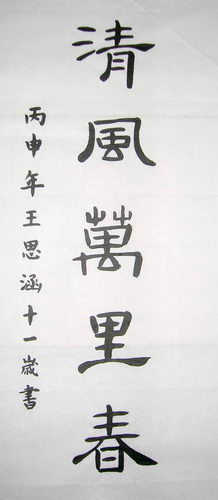 清風萬里春
丙申年王思涵十一歲書